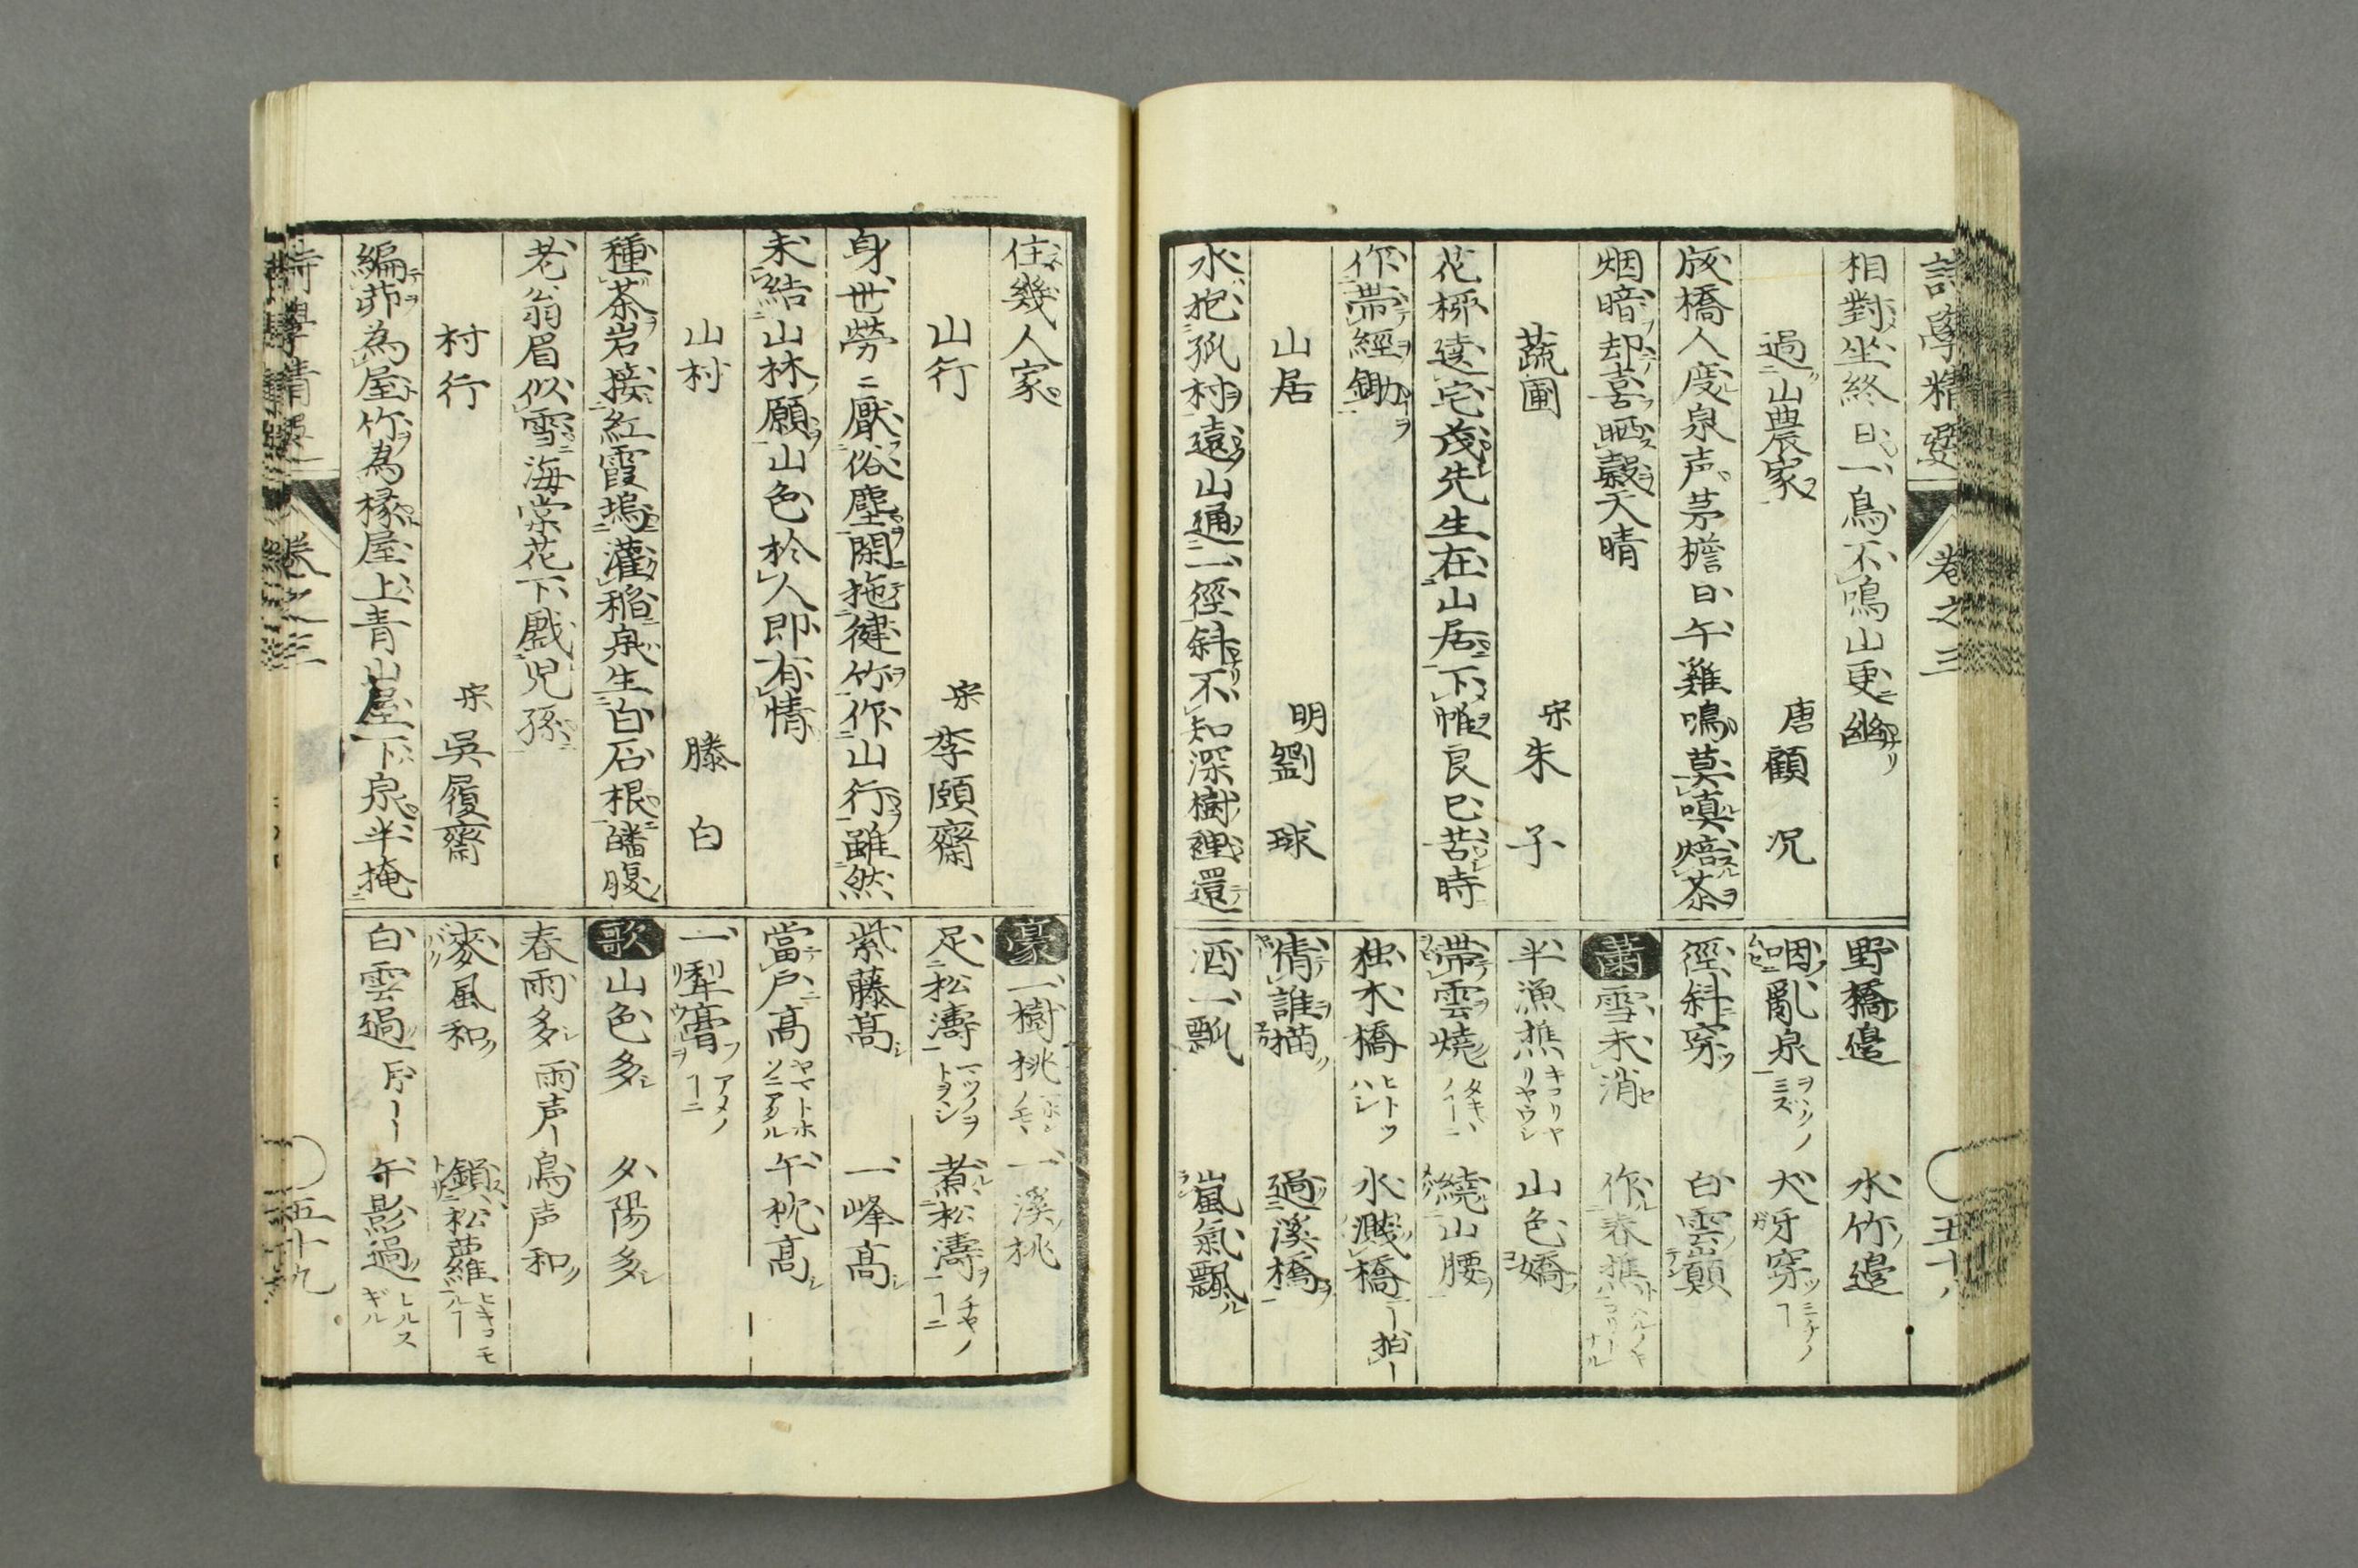 詩學精選 卷之三
相對坐終日一鳥不鳴山更幽
過山農家 唐 顧况
板橋人度泉声茅檐日午雞鳴莫嗔焙茶
烟暗却喜晒穀天晴
蔬圃 宋 朱子
花栁遶宅茂先生在山居下帷良已苦時
作帯經鋤
山居 明 劉球
水抱孤村遠山通一徑斜不知深樹裡還
野橋邉 水竹邉
咽亂泉 犬牙穿
徑斜穿 白雲巓
蕭 雪未消 作春樵
半漁樵 山色嬌
帯雲燒 繞山腰
独木橋 水濺橋
倩誰描 過溪橋
酒一瓢 嵐氣飄
住幾人家
山行 宋 李頤齋
身世勞二厭俗塵閑拖健竹作山行雖然
未結山林願山色於人即有情
山村 滕白
種茶岩接紅霞塢灌稲泉生白石根皤腹
老翁眉似雪海棠花下戲児孫
村行 宋 吳履齋
編茆為屋竹為椽屋上青山屋下泉半掩
豪 一樹桃 一溪桃
足松濤 煮松濤
紫藤髙 一峰髙
當戸髙 午枕髙
一犁膏
歌 山色多 夕陽多
春雨多 雨声 鳥声和
麥風和 鎖松蘿
白雲過 午影過
卷之三 五十九